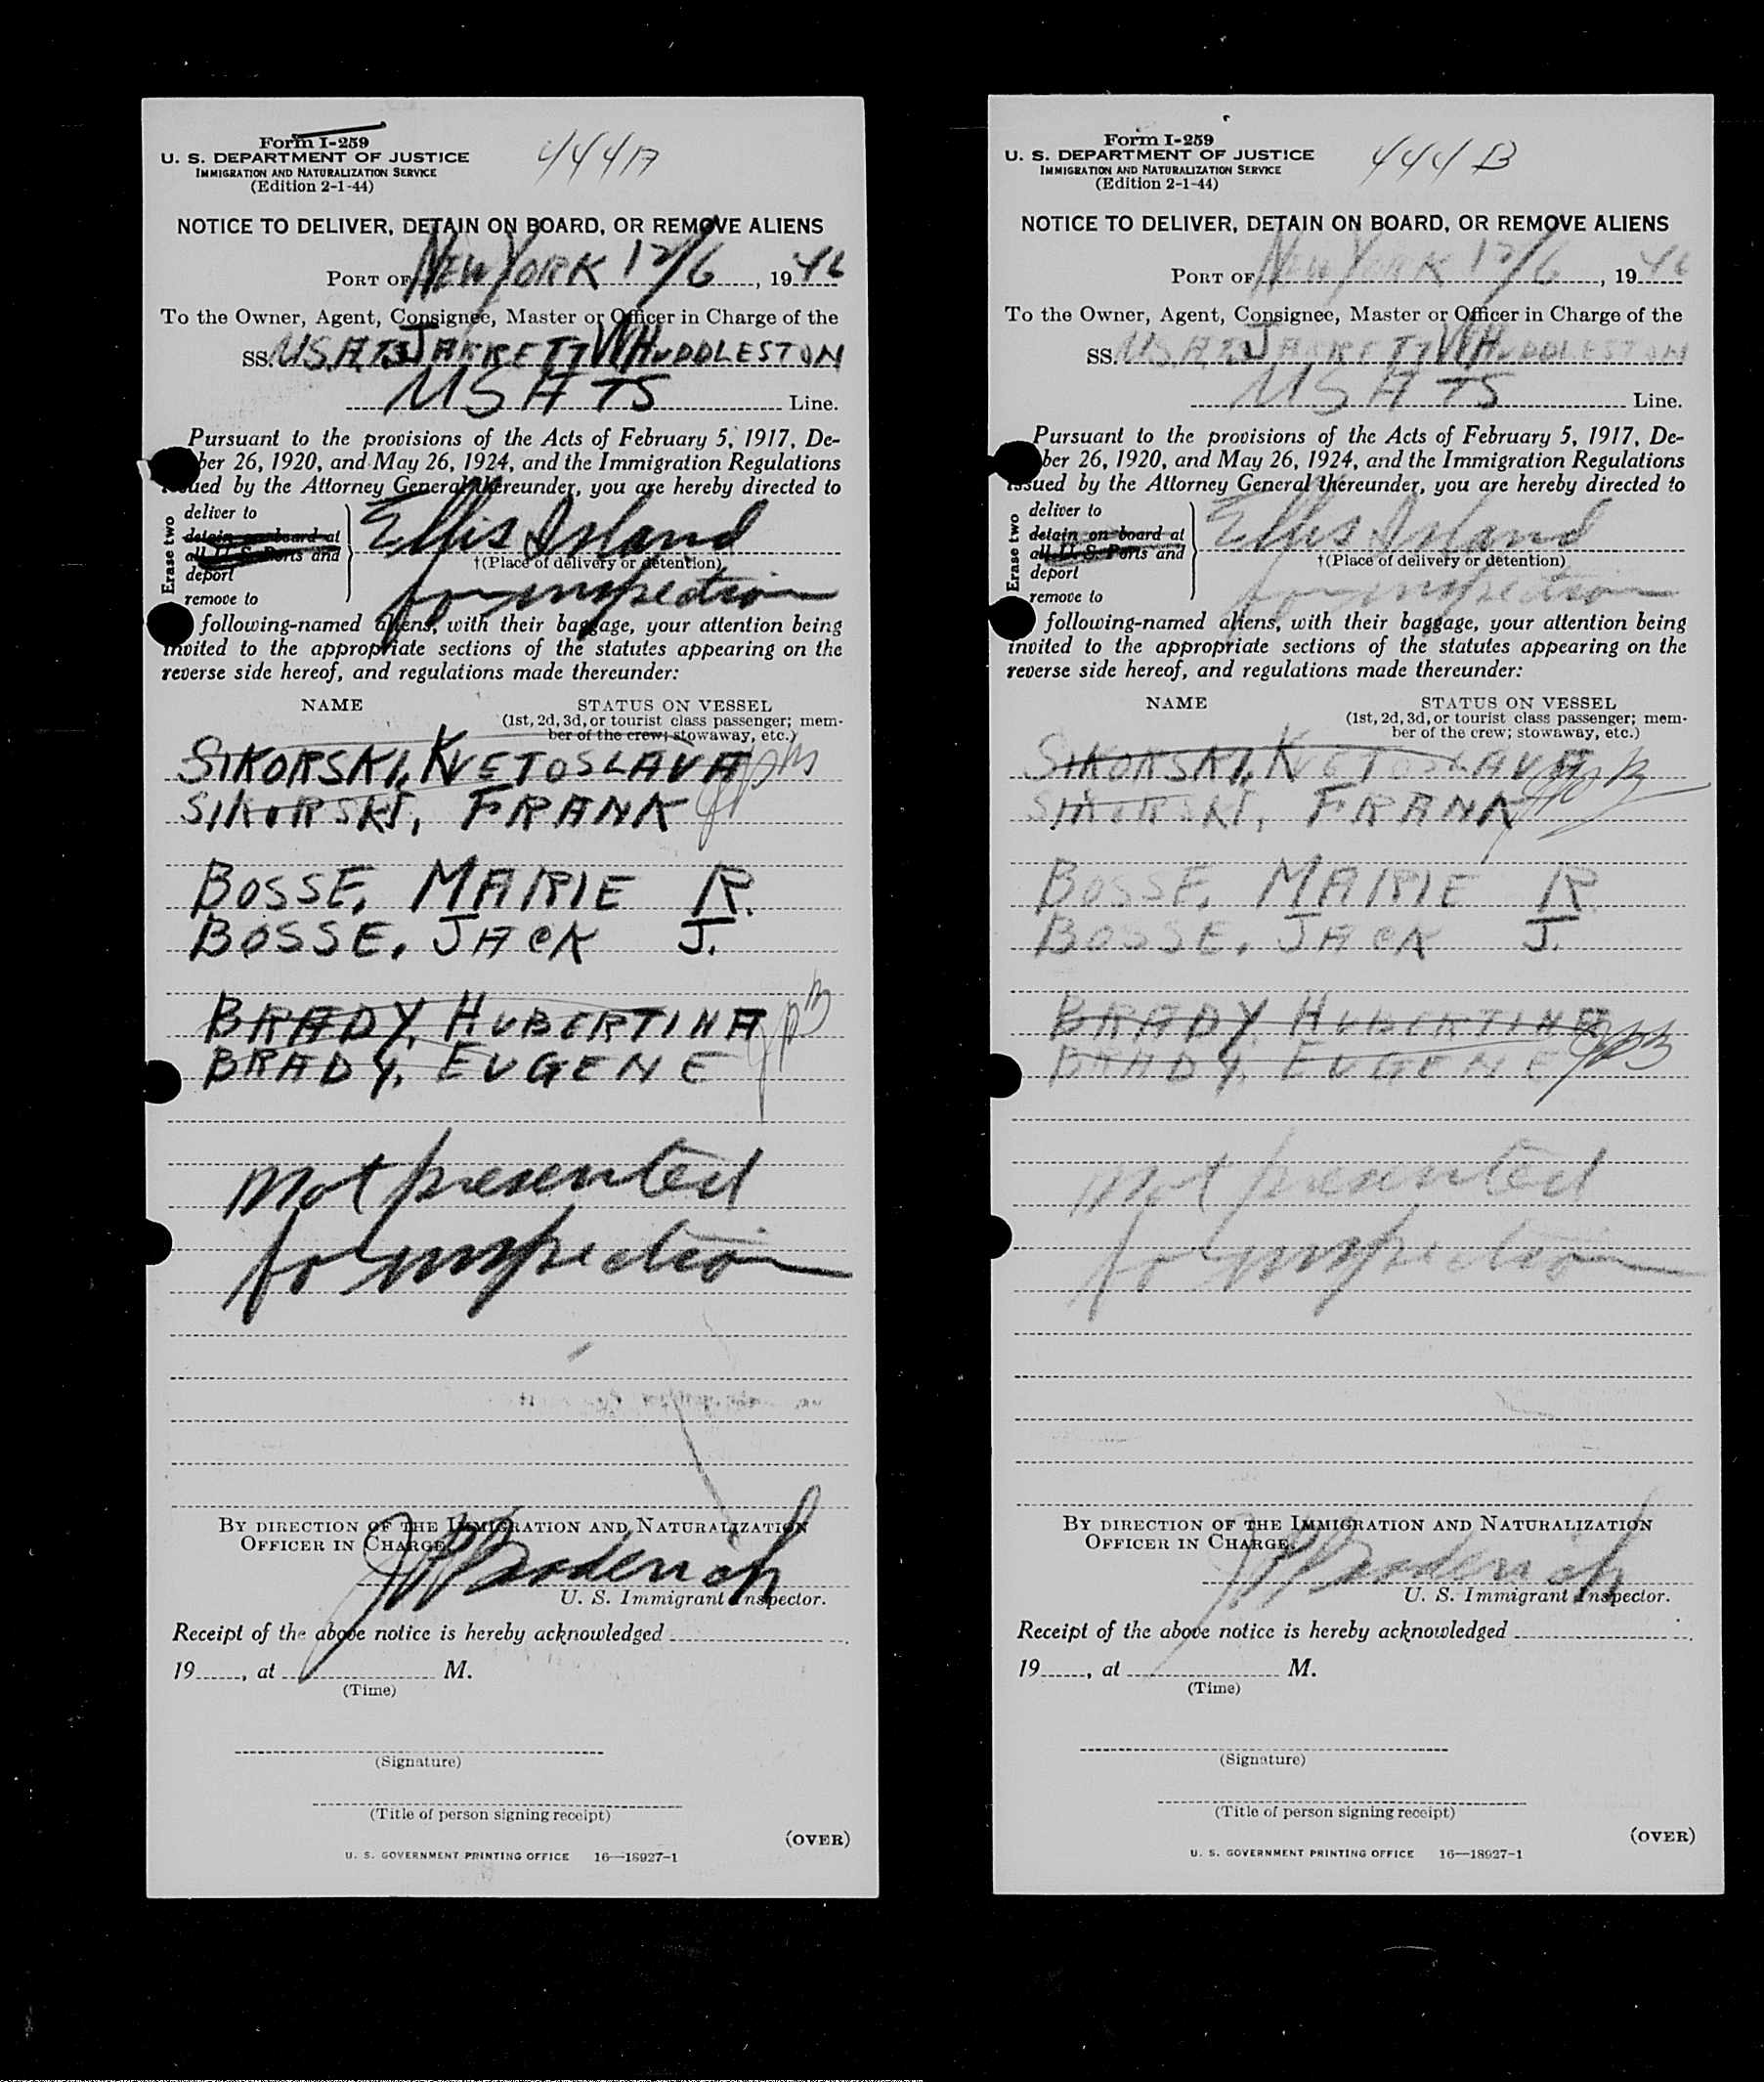 Form I-259
U. S. DEPARTMENT OF JUSTICE
IMMIGRATION AND NATURALIZATION SERVICE
(Edition 2-1-44)
444A
NOTICE TO DELIVER, DETAIN ON BOARD, OR REMOVE ALIENS
PORT OF NEW YORK 12/6, 1946
To the Owner, Agent, Consignee, Master or Officer in Charge of the
SS. USATS JARRETT W HUDDLESTON
USATS Line.
Pursuant to the provisions of the Acts of February 5, 1917, De-
ber 26, 1920, and May 26, 1924, and the Immigration Regulations
issued by the Attorney General thereunder, you are hereby directed to
Erase two
deliver to
detain on board at
all U. S. Ports and
deport
remove to
Ellis Island
†(Place of delivery or detention)
for inspection
following-named aliens, with their baggage, your attention being
invited to the appropriate sections of the statutes appearing on the
reverse side hereof, and regulations made thereunder:
NAME STATUS ON VESSEL
(1st, 2d, 3d, or tourist class passenger; mem-
ber of the crew; stowaway, etc.)
SIKORSKI, KVETOSLAVA JPB
SIKORSKI, FRANK
BOSSE, MARIE R.
BOSSE, JACK J.
BRADY, HUBERTINA JPB
BRADY, EUGENE
Not presented
for inspection
BY DIRECTION OF THE IMMIGRATION AND NATURALIZATION
OFFICER IN CHARGE.
J P Broderick
U. S. Immigrant Inspector.
Receipt of the above notice is hereby acknowledged
19, at M.
(Time)
(Signature)
(Title of person signing receipt)
(OVER)
U. S. GOVERNMENT PRINTING OFFICE 16—18927-1
Form I-259
U. S. DEPARTMENT OF JUSTICE
IMMIGRATION AND NATURALIZATION SERVICE
(Edition 2-1-44)
444B
NOTICE TO DELIVER, DETAIN ON BOARD, OR REMOVE ALIENS
PORT OF NEW YORK 12/6, 1946
To the Owner, Agent, Consignee, Master or Officer in Charge of the
SS. USATS JARRETT W HUDDLESTON
USATS Line.
Pursuant to the provisions of the Acts of February 5, 1917, De-
ber 26, 1920, and May 26, 1924, and the Immigration Regulations
issued by the Attorney General thereunder, you are hereby directed to
Erase two
deliver to
detain on board at
all U. S. Ports and
deport
remove to
Ellis Island
†(Place of delivery or detention)
for inspection
following-named aliens, with their baggage, your attention being
invited to the appropriate sections of the statutes appearing on the
reverse side hereof, and regulations made thereunder:
NAME STATUS ON VESSEL
(1st, 2d, 3d, or tourist class passenger; mem-
ber of the crew; stowaway, etc.)
SIKORSKI, KVETOSLAVA JPB
SIKORSKI, FRANK
BOSSE, MARIE R.
BOSSE, JACK J.
BRADY, HUBERTINA JPB
BRADY, EUGENE
Not presented
for inspection
BY DIRECTION OF THE IMMIGRATION AND NATURALIZATION
OFFICER IN CHARGE.
J P Broderick
U. S. Immigrant Inspector.
Receipt of the above notice is hereby acknowledged
19, at M.
(Time)
(Signature)
(Title of person signing receipt)
(OVER)
U. S. GOVERNMENT PRINTING OFFICE 16—18927-1